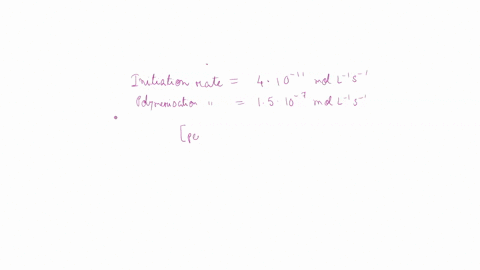 Initiation rate = 4 · 10⁻¹¹ mol L⁻¹ s⁻¹
Polymerisation " = 1.5 · 10⁻⁷ mol L⁻¹ s⁻¹
[pe